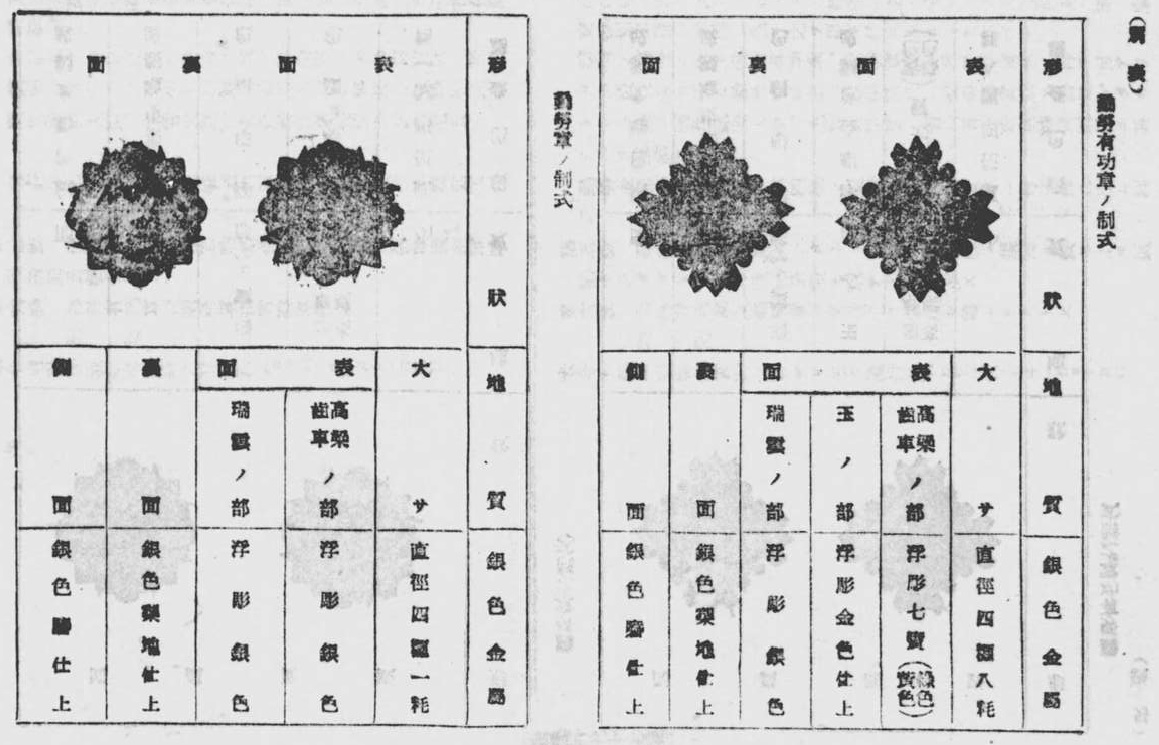 (別表)
勤勞有功章ノ制式
形狀
表面
裏面
地質
銀色金屬
大サ
直徑四糎八粍
表面
高粱齒車ノ部
浮彫七寶(綠色黃色)
玉ノ部
浮彫金色仕上
瑞雲ノ部
浮彫銀色
裏面
銀色梨地仕上
側面
銀色磨仕上
勤勞章ノ制式
形狀
表面
裏面
地質
銀色金屬
大サ
直徑四糎一粍
表面
高粱齒車ノ部
浮彫銀色
瑞雲ノ部
浮彫銀色
裏面
銀色梨地仕上
側面
銀色磨仕上